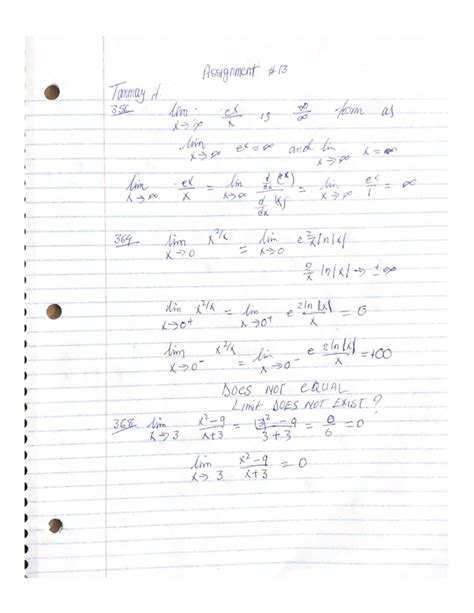 Assignment #13
Tanmay A
356 lim x→∞ e^x/x is ∞/∞ form as
lim x→∞ e^x = ∞ and lim x→∞ x = ∞
lim x→∞ e^x/x = lim x→∞ d/dx (e^x) / d/dx (x) = lim x→∞ e^x/1 = ∞
364 lim x→0 x^(2/x) = lim x→0 e^(2/x) ln|x|
2/x ln|x| → ±∞
lim x→0+ x^(2/x) = lim x→0+ e^(2ln|x|/x) = 0
lim x→0- x^(2/x) = lim x→0- e^(2ln|x|/x) = +∞
DOES NOT EQUAL
LIMIT DOES NOT EXIST.?
368 lim x→3 (x^2-9)/(x+3) = (3^2-9)/(3+3) = 0/6 = 0
lim x→3 (x^2-9)/(x+3) = 0